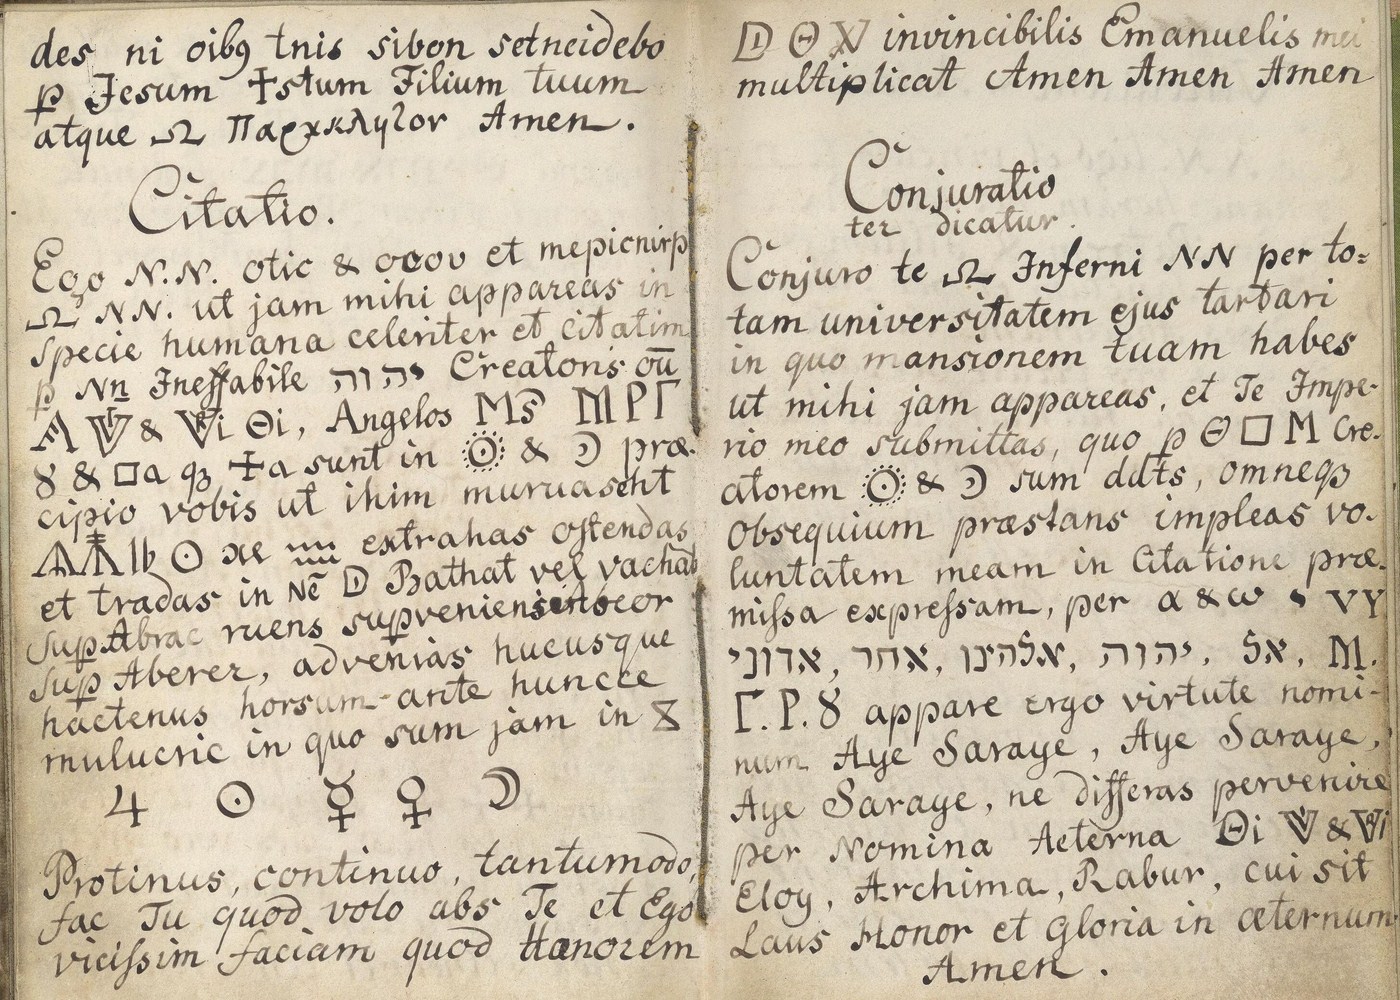 des ni oibꝯ tnis sibon setneidebo
ꝑ Jesum ✝stum Filium tuum
atque Ω Παρχκλητor Amen.
Citatio.
Ego N.N. otic & ooov et mepicnirp
Ω NN. ut jam mihi appareas in
specie humana celeriter et citatim
ꝑ Nn Ineffabile יהוה Creatoris
& Θi, Angelos
& □a qꝫ ✝a sunt in ☉ & ☽ præ-
cipio vobis ut ihim muruaseht
☉ extrahas ostendas
et tradas in Bathat vel vachat
suꝑ Abrac ruens suꝑveniens
suꝑ Aberer, advenias hucusque
hactenus horsum ante huncce
mulucric in quo sum jam in
♃ ☉ ☿ ♀ ☽
Protinus, continuo, tantumodo,
fac Tu quod volo abs Te et Ego
vicissim faciam quod Honorem
invincibilis Emanuelis mei
multiplicat Amen Amen Amen
Conjuratio
ter dicatur.
Conjuro te Ω Inferni NN per to=
tam universitatem ejus tartari
in quo mansionem tuam habes
ut mihi jam appareas, et Te Impe-
rio meo submittas, quo ꝑ Θ □ M Cre-
atorem ☉ & ☽ sum ddts, omneqꝫ
obsequium præstans impleas vo-
luntatem meam in Citatione præ-
missa expressam, per α & ω VY
אדוני, אחד, אלהינו, יהוה, אל, M.
Γ. P. 8 appare ergo virtute nomi-
num Aye Saraye, Aye Saraye,
Aye Saraye, ne differas pervenire
per Nomina Aeterna Θi &
Eloy, Archima, Rabur, cui sit
Laus Honor et Gloria in æternum
Amen.